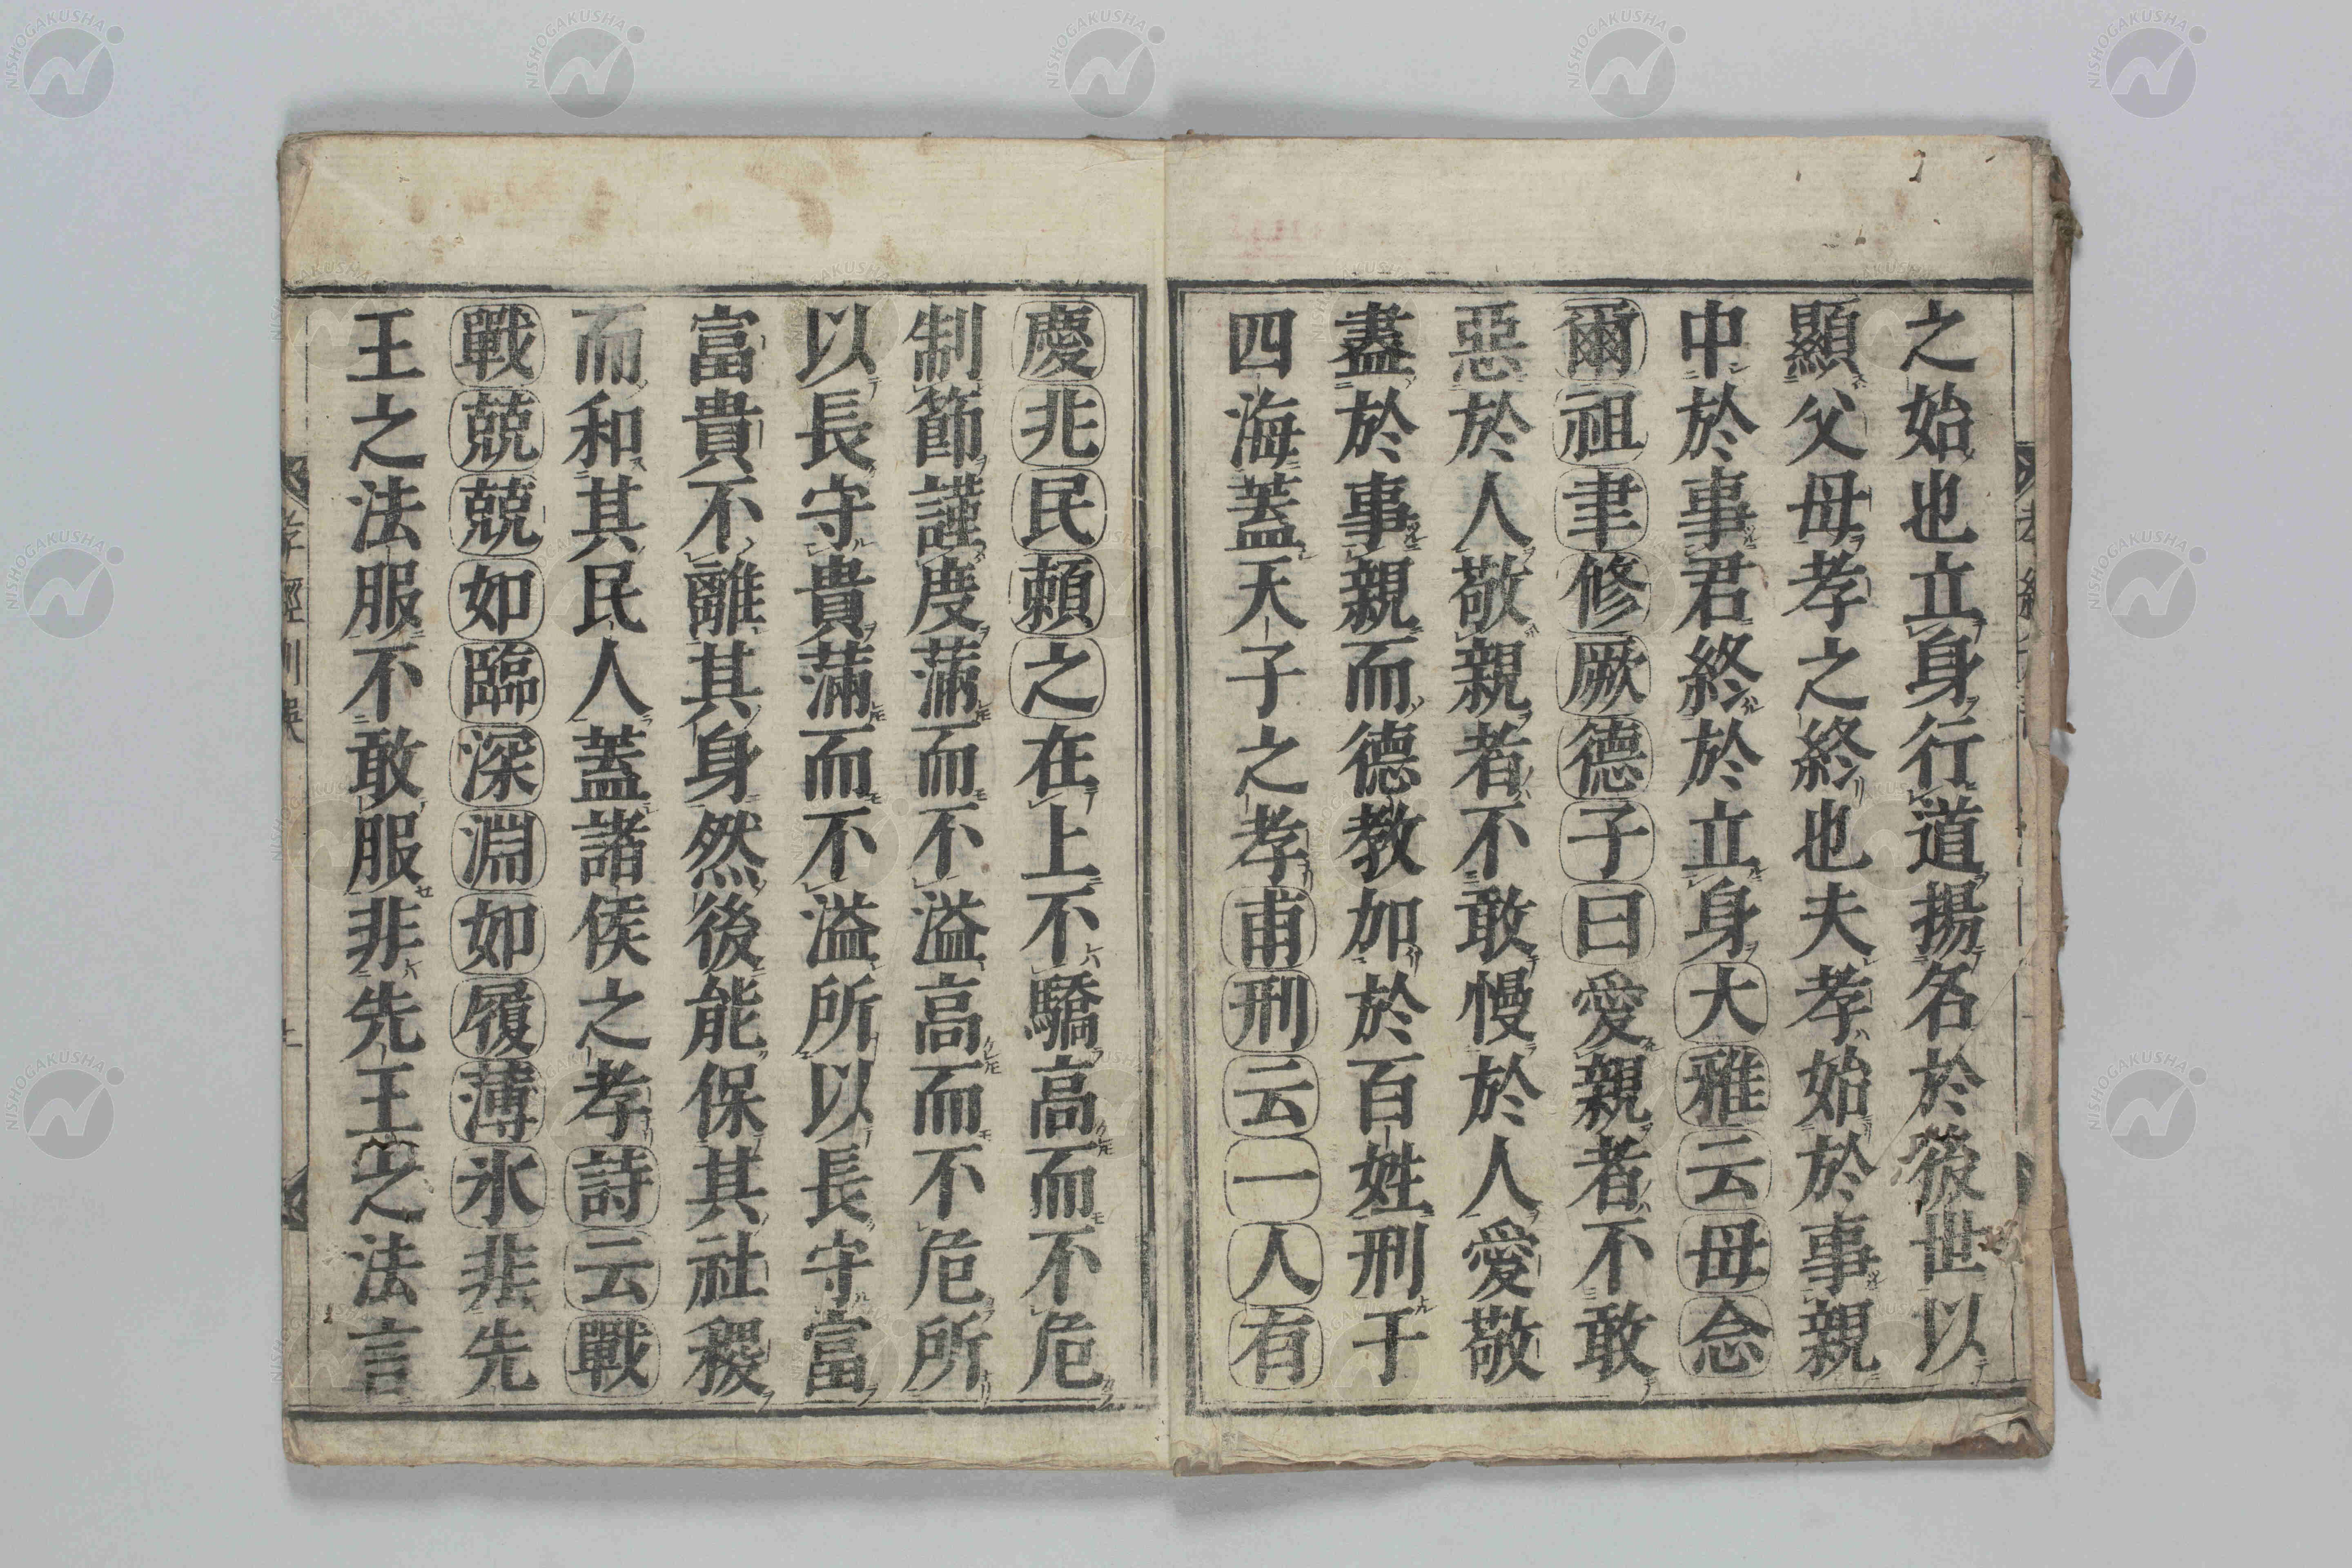 之始也立身行道揚名於後世以
顯父母孝之終也夫孝始於事親
中於事君終於立身大雅云毋念
爾祖聿修厥德子曰愛親者不敢
惡於人敬親者不敢慢於人愛敬
盡於事親而德教加於百姓刑于
四海蓋天子之孝甫刑云一人有
慶兆民頼之在上不驕高而不危
制節謹度滿而不溢高而不危所
以長守貴滿而不溢所以長守富
富貴不離其身然後能保其社稷
而和其民人蓋諸侯之孝詩云戰
戰兢兢如臨深淵如履薄氷非先
王之法服不敢服非先王之法言
NISHOGAKUSHA